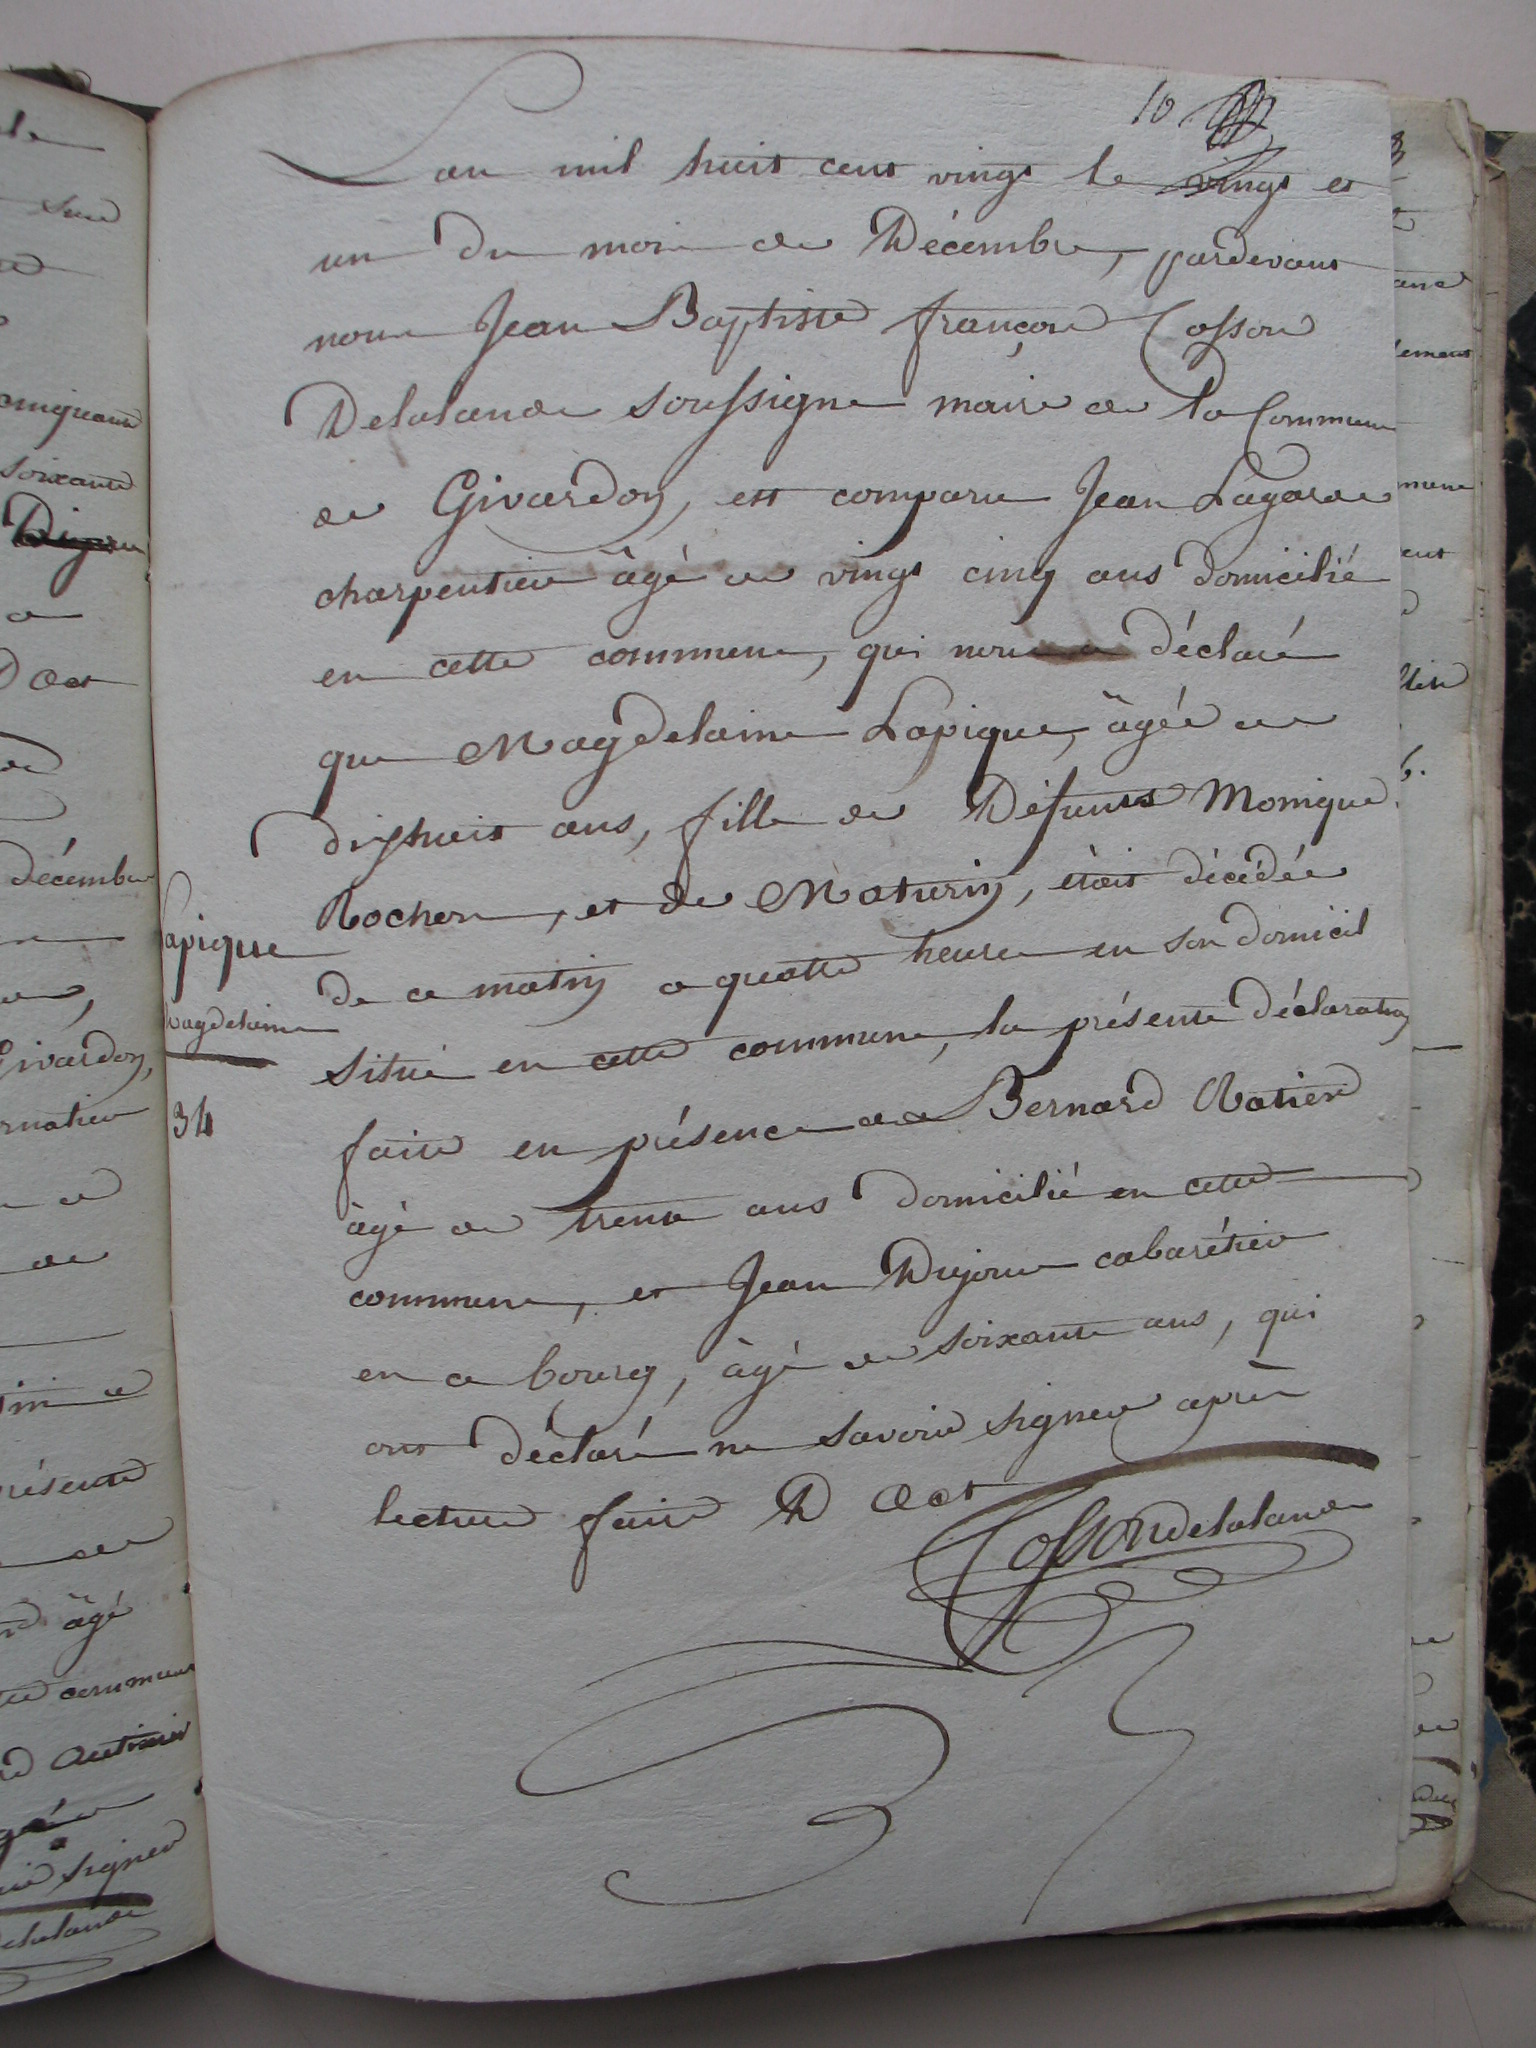 10
Lan mil huit cent vingt le vingt et
un du mois de Décembre, pardevant
nous Jean Baptiste françois Cosson
Delalande soussigne maire de la Commune
de Givardon, est comparu Jean Lagarde
charpentier âgé de vingt cinq ans domicilié
en cette commune, qui nous a déclaré
que Magdelaine Lapique, âgée de
dixhuit ans, fille de Défunts Monique
Rocher, et de Maturin, étoit décédée
de ce matin a quatre heure en son domicil
situé en cette commune, la présente déclaration
faite en présence de Bernard Ratier
âgé de trente ans domicilié en cette
commune, et Jean Dujour cabarétier
en ce bourg, âgé de soixante ans, qui
ont déclaré ne savoir signer après
lecture faite D Act
Cossondelalande
apique
Magdelaine
34
cinquante
soixante
D Act
décembre
Givardon,
présente
âgé
commune
signer
delalande